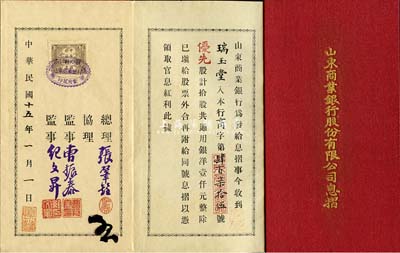 山東商業銀行股份有限公司息摺
山東商業銀行為發給息摺事今收到
瑞玉堂入本行商字第肆百柒拾伍號
優先股計拾股共通用銀洋壹仟元整除
已填給股票外合再附給同號息摺以憑
領取官息紅利此據
總理 張肇銓
協理
監事 曹振
監事 紀文昇
中華民國十五年一月一日